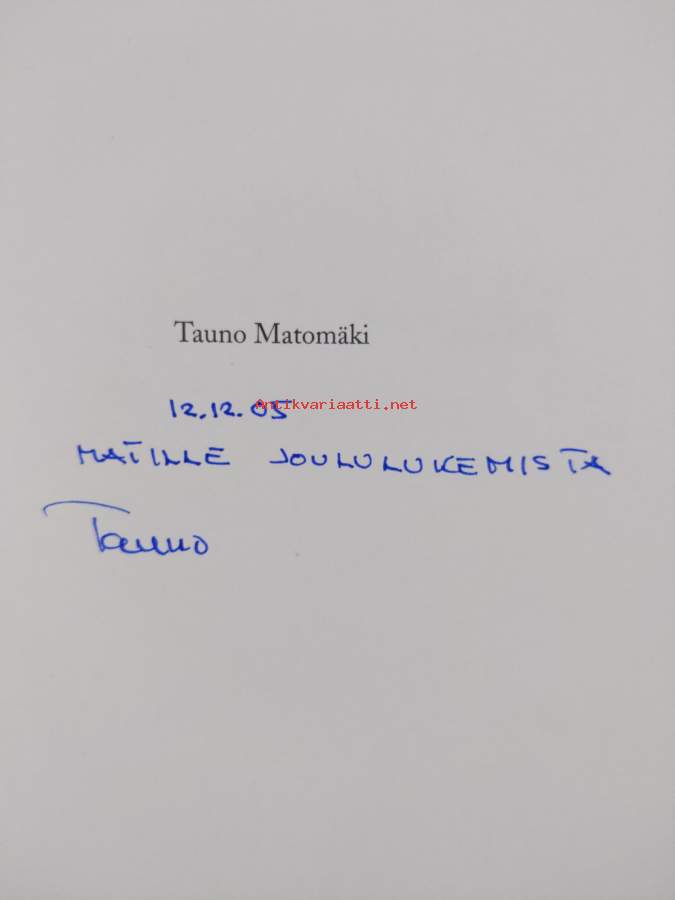 Tauno Matomäki
12.12.05
Antikvariaatti.net
MATILLE JOULULUKEMISTA
Tauno